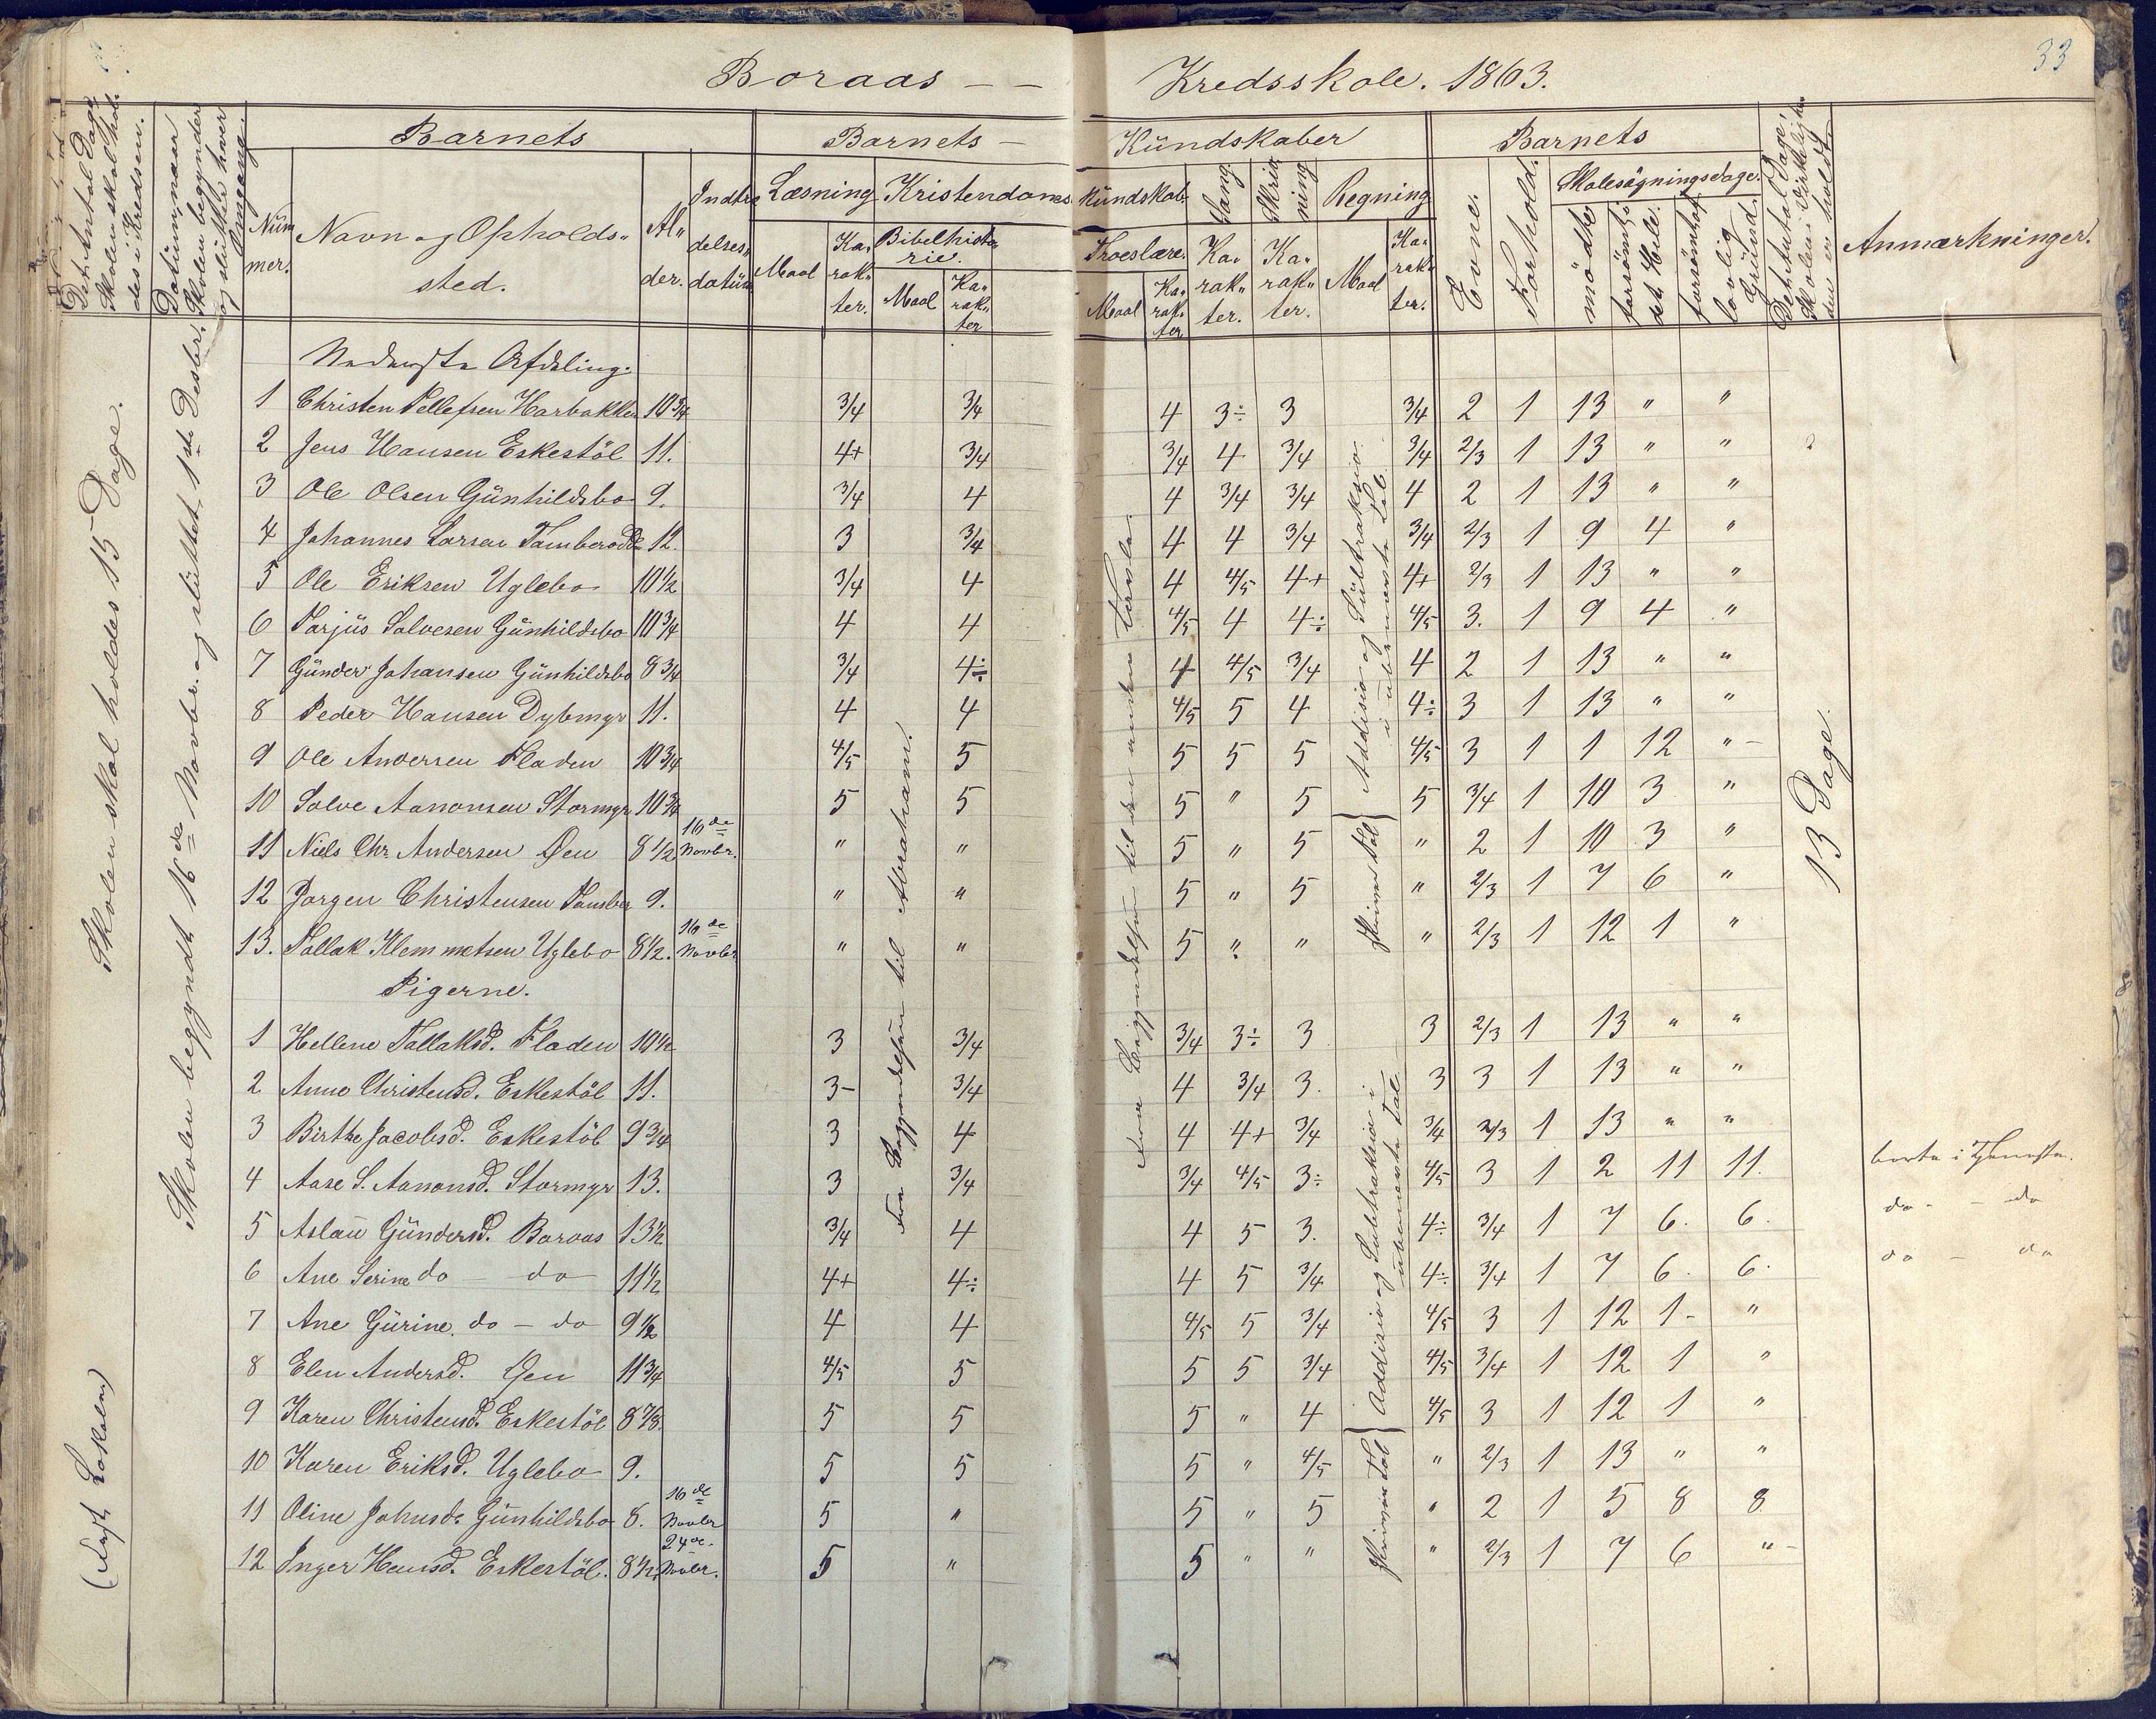 33
Boraas – – Kredsskole. 1863.
Det Antal Dage Skolen skal holdes i Kredsen.
Datum, naar Skolen begynder og slutter hver Omgang.
Barnets
Nummer.
Navn og Opholdssted.
Alder.
Indtrædelsesdatum
Barnets – Kündskaber
Læsning
Maal
Karakter.
Kristendomskundskab
Bibelhistorie.
Maal
Karakter
Troeslære.
Maal
Karakter
Sang
Karakter.
Skrivning
Karakter.
Regning
Maal
Karakter.
Barnets
Evne.
Forhold.
Skolesøgningsdage.
mödte
forsömte i det Hele.
forsömte af lovlig Grund.
Det Antal Dage, Skolen i Virkeligheden er holdt.
Anmærkninger.
Skolen skal holdes 15 Dage.
Skolen begyndt 16de Novbr. og sluttet 1ste Decbr.
(Fast Lokale)
Nederste Afdeling.
1 Christen Tellefsen Harbakken 10 3/4 3/4 3/4 4 3÷ 3 3/4 2 1 13 " "
2 Jens Hansen Eskestöl 11. 4+ 3/4 3/4 4 3/4 3/4 2/3 1 13 " "
3 Ole Olsen Günhildsbo 9. 3/4 4 4 3/4 3/4 4 2 1 13 " "
4 Johannes Larsen 12. 3 3/4 4 4 3/4 3/4 2/3 1 9 4 "
5 Ole Eriksen Uglebo 10 1/2 3/4 4 4 4/5 4+ 4+ 2/3 1 13 " "
6 Tarjüs Salvesen Günhildsbo 10 3/4 4 4 4/5 4 4÷ 4/5 3. 1 9 4 "
7 Günder Johansen Günhildsbo 8 3/4 3/4 4÷ 4 4/5 3/4 4 2 1 13 " "
8 Peder Hansen Dybmyr 11. 4 4 4/5 5 4 4÷ 3 1 13 " "
9 Ole Andersen Fladen 10 3/4 4/5 5 5 5 5 4/5 3 1 1 12 "
10 Salve Aanonsen Stormyr 10 3/4 5 5 5 " 5 5 3/4 1 10 3 "
11 Niels Chr. Andersen Øen 8 1/2 16de Novbr. " " 5 " 5 " 2 1 10 3 "
12 Jørgen Christensen 9. " " 5 " 5 " 2/3 1 7 6 "
13. Tallak Klemmetsen Uglebo 8 1/2. 16de Novbr " " 5 " " " 2/3 1 12 1 "
Pigerne.
1 Hellene Tallaksd. Fladen 10 1/2 3 3/4 3/4 3÷ 3 3 2/3 1 13 " "
2 Anne Christensd. Eskestöl 11. 3– 3/4 4 3/4 3. 3 3 1 13 " "
3 Birthe Jacobsd. Eskestöl 9 3/4 3 4 4 4+ 3/4 3/4 2/3 1 13 " "
4 Aase S. Aanonsd. Stormyr 13. 3 3/4 3/4 4/5 3÷ 4/5 3 1 2 11 11. borte i Tjeneste.
5 Aslau Gündersd. Boraas 13 1/2 3/4 4 4 5 3. 4÷ 3/4 1 7 6. 6. do – do
6 Ane Serine do – do 11 1/2 4+ 4÷ 4 5 3/4 4÷ 3/4 1 7 6. 6. do – do
7 Ane Gürine. do – do 9 1/2 4 4 4/5 5 3/4 4/5 3 1 12 1– "
8 Elen Andersd. Øen 11 3/4 4/5 5 5 5 3/4 4/5 3/4 1 12 1 "
9 Karen Christensd. Eskestöl 8 7/8. 5 5 5 " 4 4/5 3 1 12 1 "
10 Karen Eriksd. Uglebo 9. 5 5 5 " 4/5 " 2/3 1 13 " "
11 Oline Johnsd. Günhildsbo 8. 16de Novbr 5 " 5 " 5 " 2 1 5 8 8
12 Inger Hansd. Eskestöl. 8 1/2. 24de Novbr. 5 " 5 " " " 2/3 1 7 6 "
Fra Begyndelsen til Abrahann.
Fra Begyndelsen til den anden
Addisio og Sübtraksio i übenævnte Tal
skrive Tal
Addisio og Subtraksio i übenævnte Tal.
skrive Tal
13 Dage.